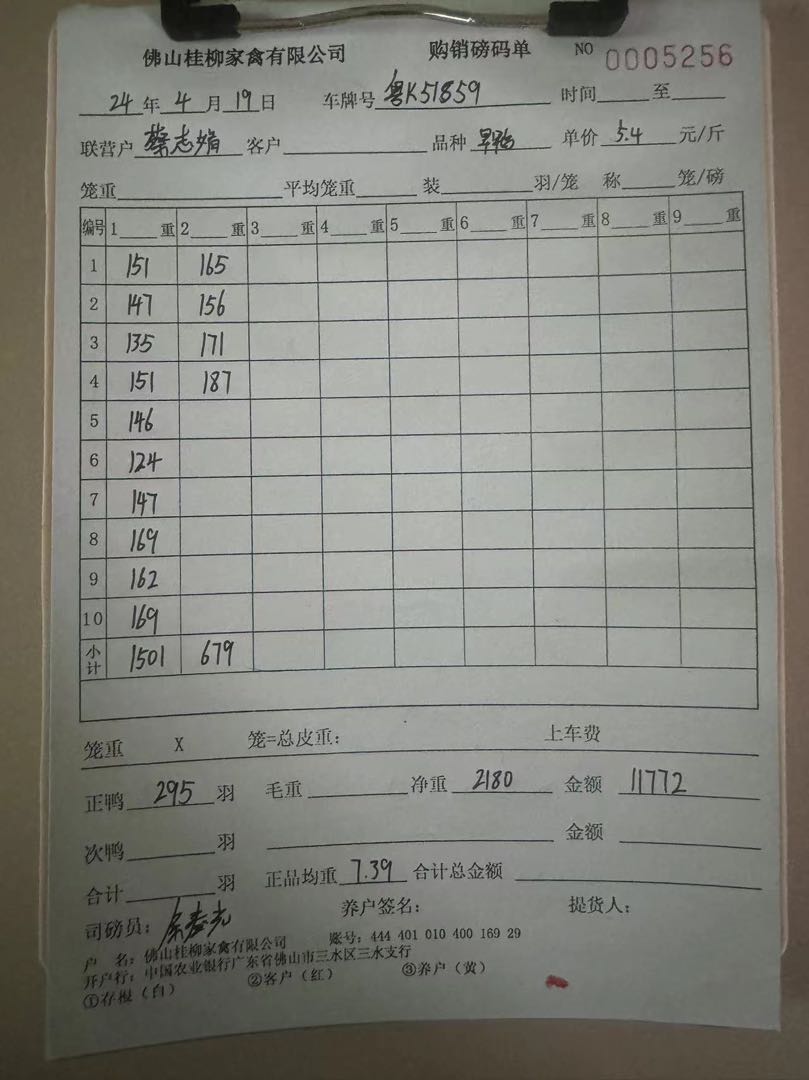 佛山桂柳家禽有限公司 购销磅码单 NO 0005256
24年4月19日 车牌号粤K51859 时间 至
联营户 蔡志娟 客户 品种 单价 5.4 元/斤
笼重 平均笼重 装 羽/笼 称 笼/磅
编号 1 重 2 重 3 重 4 重 5 重 6 重 7 重 8 重 9 重
1 151 165
2 147 156
3 135 171
4 151 187
5 146
6 124
7 147
8 169
9 162
10 169
小计 1501 679
笼重 X 笼=总皮重: 上车费
正鸭 295 羽 毛重 净重 2180 金额 11772
次鸭 羽 金额
合计 羽 正品均重 7.39 合计总金额
司磅员: 养户签名: 提货人:
户 名: 佛山桂柳家禽有限公司 账号: 444 401 010 400 169 29
开户行: 中国农业银行广东省佛山市三水区三水支行
①存根(白) ②客户(红) ③养户(黄)